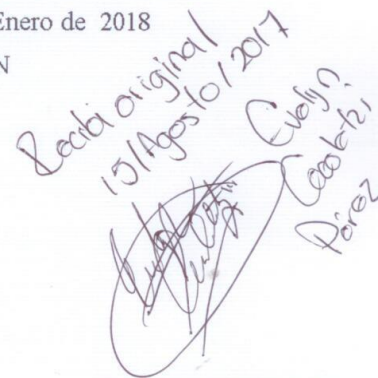 Enero de 2018
N
Recibi original
15/Agosto/2017
Evelyn
Pérez